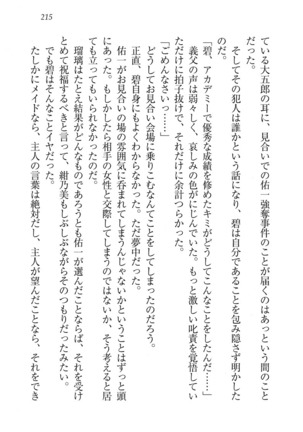 215
だった。
いた大五郎の耳に、見合いでの佑一強奪事件のことが届くのはあっという間のこと
そしてその犯人は誰かという話になり、碧は自分であることを包み隠さず明かした
のだ。
「碧、アカデミーで優秀な成績を修めたキミがどうしてこんなことをしたんだ……」
義父の声は弱々しく、哀しみの色がにじんでいた。もっと激しい叱責を覚悟してい
ただけに拍子抜けで、それだけに余計つらかった。
「ごめんなさいっ……」
どうしてお見合い会場に乗りこむなんてことをしてしまったのだろう。
正直、碧自身にもよくわからなかった。ただ、夢中だった。
佑一がお見合いの場の雰囲気に呑まれてしまうんじゃないかということはずっと頭
にあった。もしかしたら相手の女性と交際してしまうのではないか、そう考えると居
ても立ってもいられなかったのだ。
瑠璃はたとえ結果がどんなものであろうとも佑一が選んだことならば、それを受け
とめて祝福するべきと言い、紺乃美もしぶしぶながらそのつもりだったみたい。
でも碧はそんなことイヤだった。
たしかにメイドなら、主人の言葉は絶対だし、主人が望んだことなら、それをでき